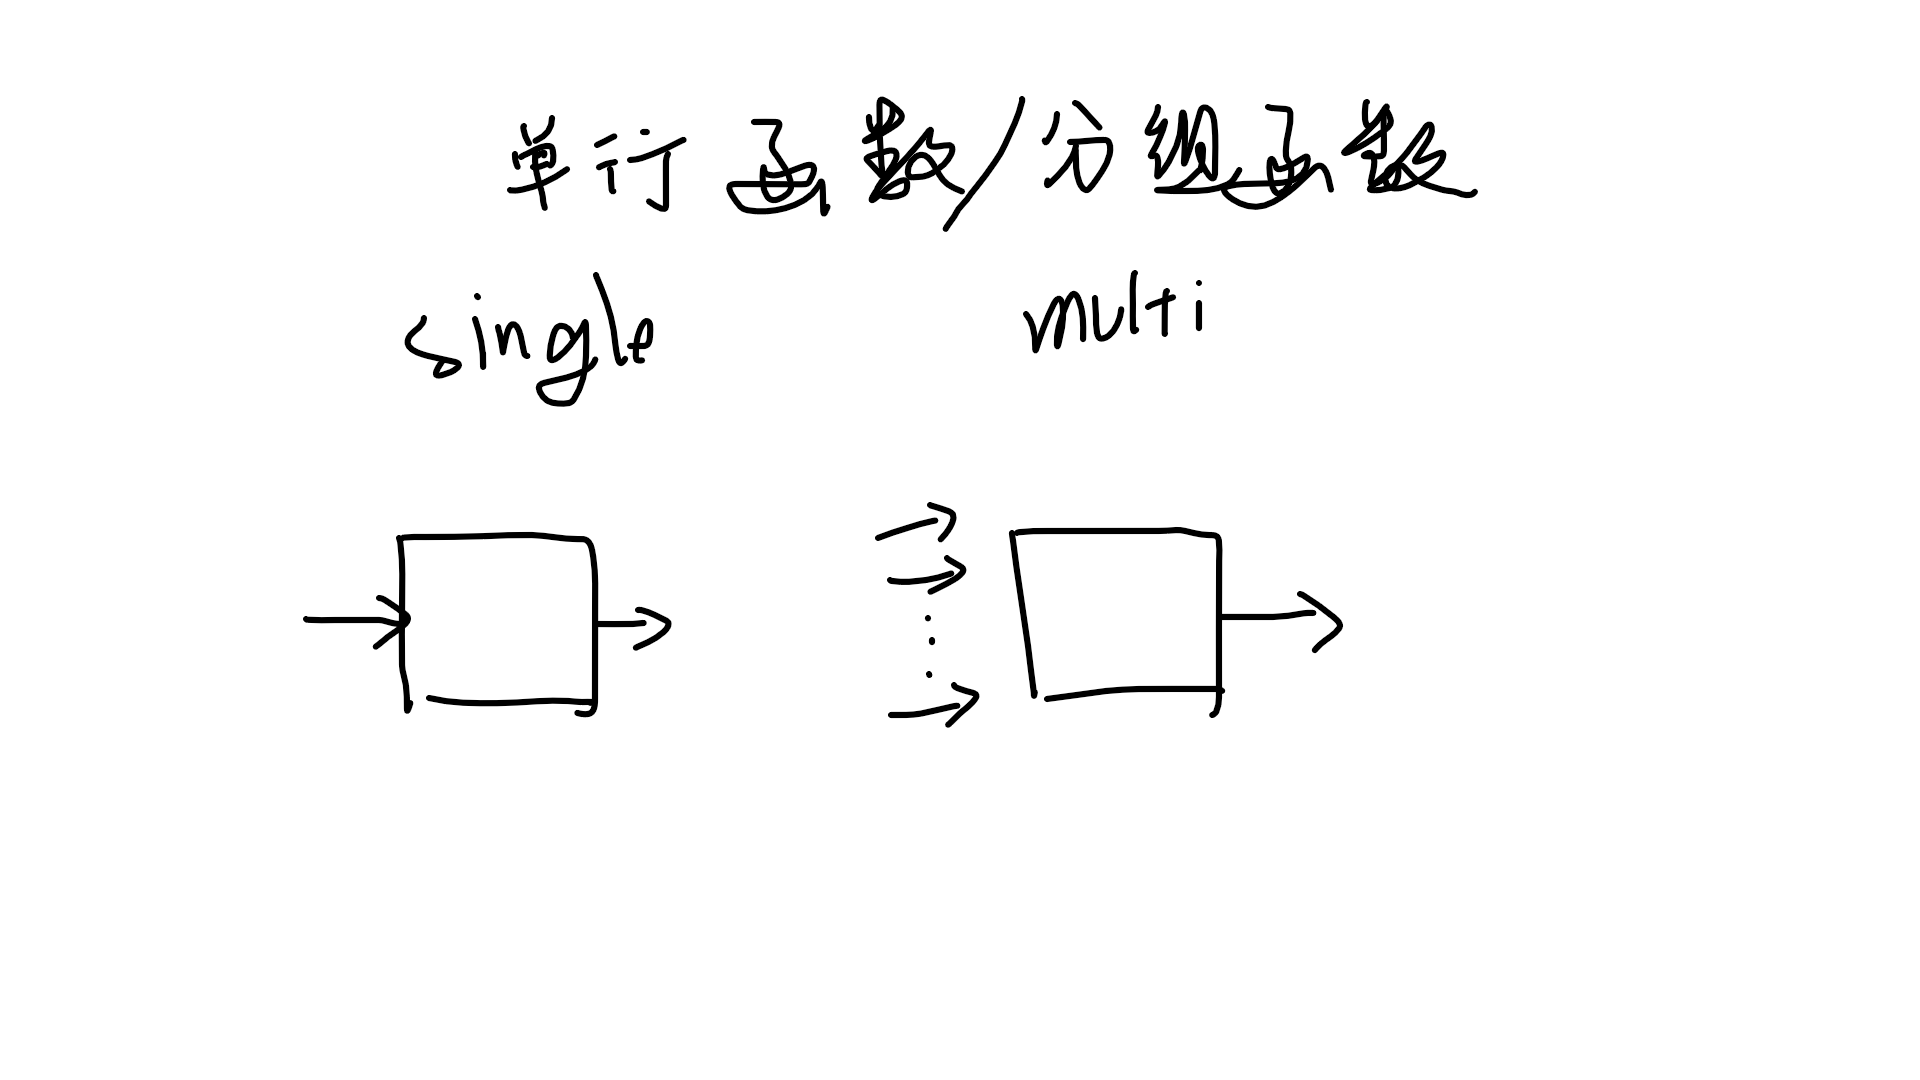 单行函数/分组函数
single multi